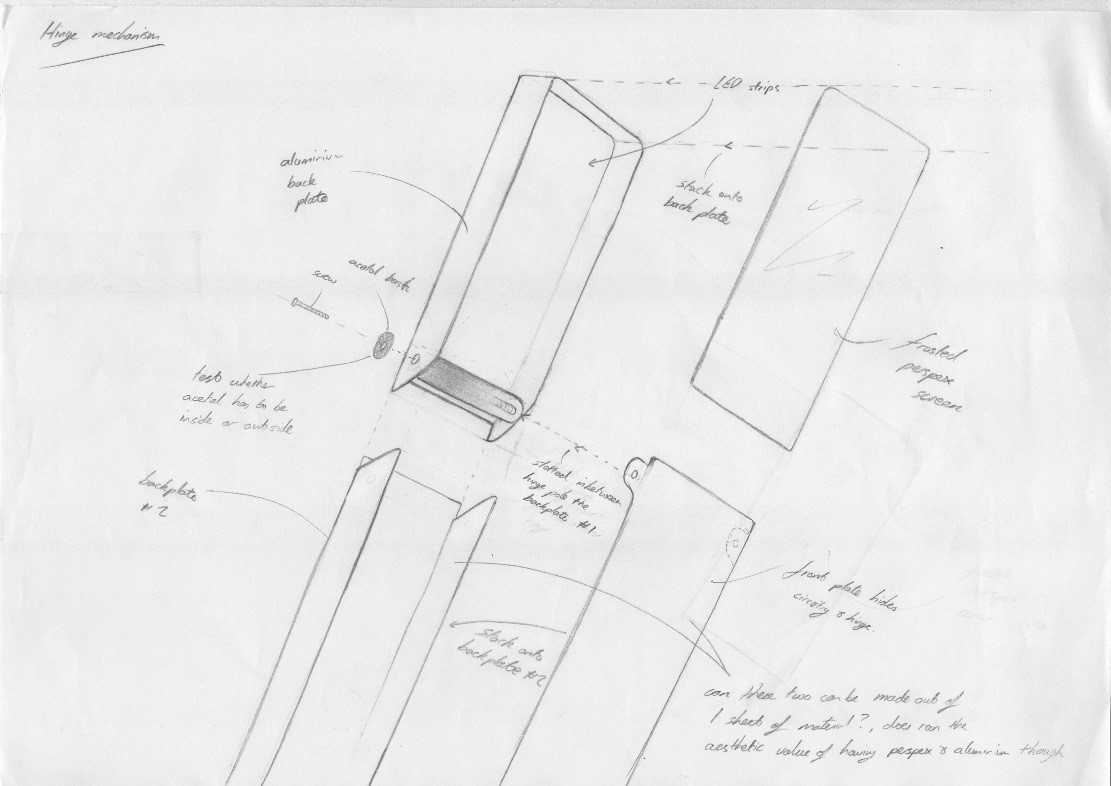 Hinge mechanism
LED strips
aluminium
back
plate
stack onto
back plate
screw
acetal bush
frosted
perspex
screen
test whether
acetal has to be
inside or outside
slotted inbetween
hinge pole the
backplate #1
backplate
#2
front plate hides
circuitry & hinge.
stack onto
backplate #2
can these two can be made out of
1 sheet of material?, does ruin the
aesthetic value of having perspex & aluminium though